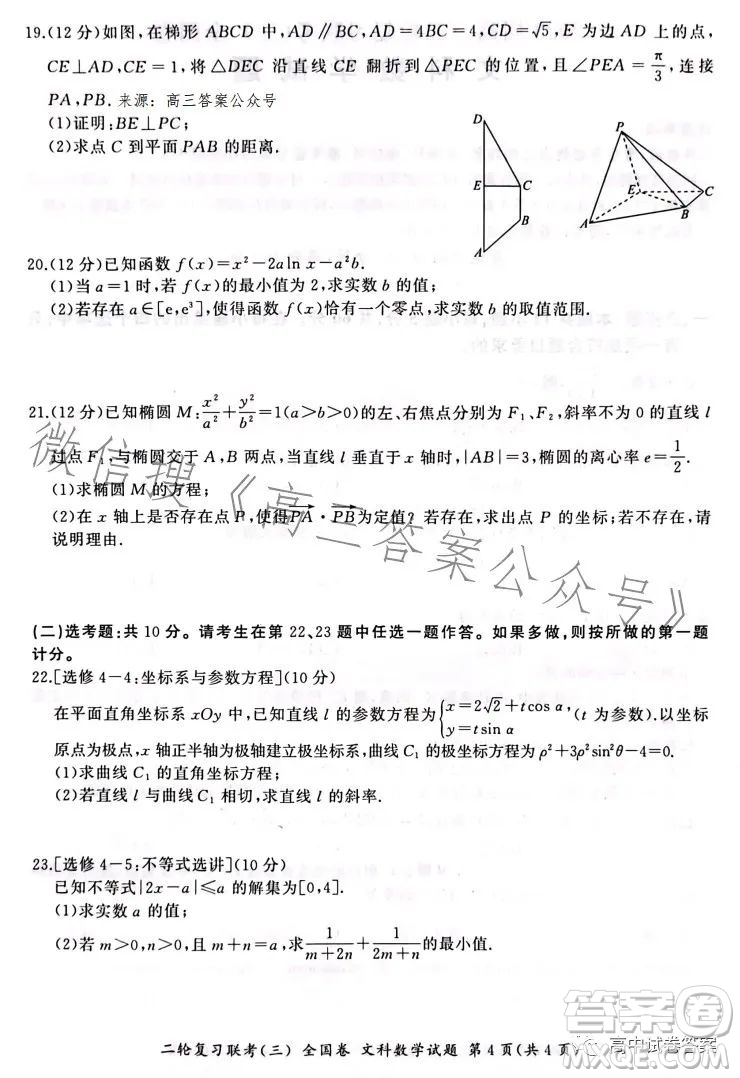 19.(12 分)如图,在梯形 ABCD 中,AD∥BC,AD=4BC=4,CD=√5,E 为边 AD 上的点,
CE⊥AD,CE=1,将△DEC 沿直线 CE 翻折到△PEC 的位置,且∠PEA=π/3,连接
PA,PB.来源:高三答案公众号
(1)证明:BE⊥PC;
(2)求点 C 到平面 PAB 的距离.
D
E C
B
A
P
E C
B
A
20.(12 分)已知函数 f(x)=x²-2aln x-a²b.
(1)当 a=1时,若 f(x)的最小值为 2,求实数 b 的值;
(2)若存在 a∈[e,e³],使得函数 f(x)恰有一个零点,求实数 b 的取值范围.
21.(12 分)已知椭圆 M:x²/a²+y²/b²=1(a>b>0)的左、右焦点分别为 F₁、F₂,斜率不为 0 的直线 l
过点 F₁,与椭圆交于 A,B 两点,当直线 l 垂直于 x 轴时,|AB|=3,椭圆的离心率 e=1/2.
(1)求椭圆 M 的方程;
(2)在 x 轴上是否存在点 P,使得PA·PB为定值?若存在,求出点 P 的坐标;若不存在,请
说明理由.
微信搜《高三答案公众号》
(二)选考题:共 10 分。请考生在第 22、23 题中任选一题作答。如果多做,则按所做的第一题
计分。
22.[选修 4-4:坐标系与参数方程](10 分)
在平面直角坐标系 xOy 中,已知直线 l 的参数方程为{x=2√2+tcos α, y=tsin α (t 为参数).以坐标
原点为极点,x 轴正半轴为极轴建立极坐标系,曲线 C₁的极坐标方程为ρ²+3ρ²sin²θ-4=0.
(1)求曲线 C₁的直角坐标方程;
(2)若直线 l 与曲线 C₁ 相切,求直线 l 的斜率.
23.[选修 4-5:不等式选讲](10 分)
已知不等式|2x-a|≤a 的解集为[0,4].
(1)求实数 a 的值;
(2)若 m>0,n>0,且 m+n=a,求1/(m+2n)+1/(2m+n)的最小值.
二轮复习联考(三) 全国卷 文科数学试题 第 4 页(共 4 页)
高中试卷答案
答案圈
MXQE.COM